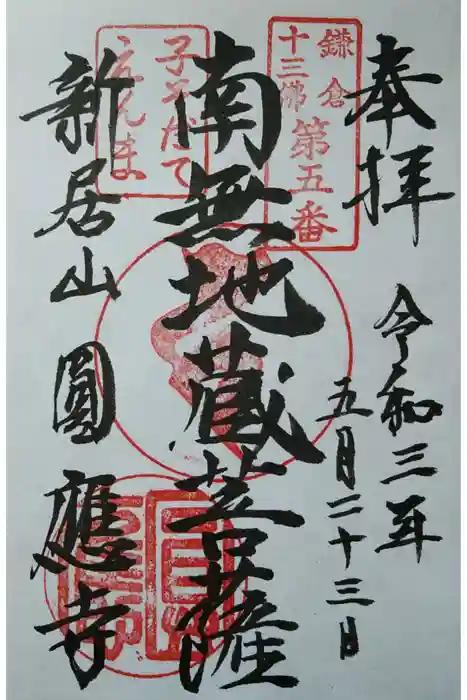 奉拝
令和三年
五月二十三日
鎌倉
十三佛
第五番
南無地蔵菩薩
子そだて
えんま
新居山圓應寺